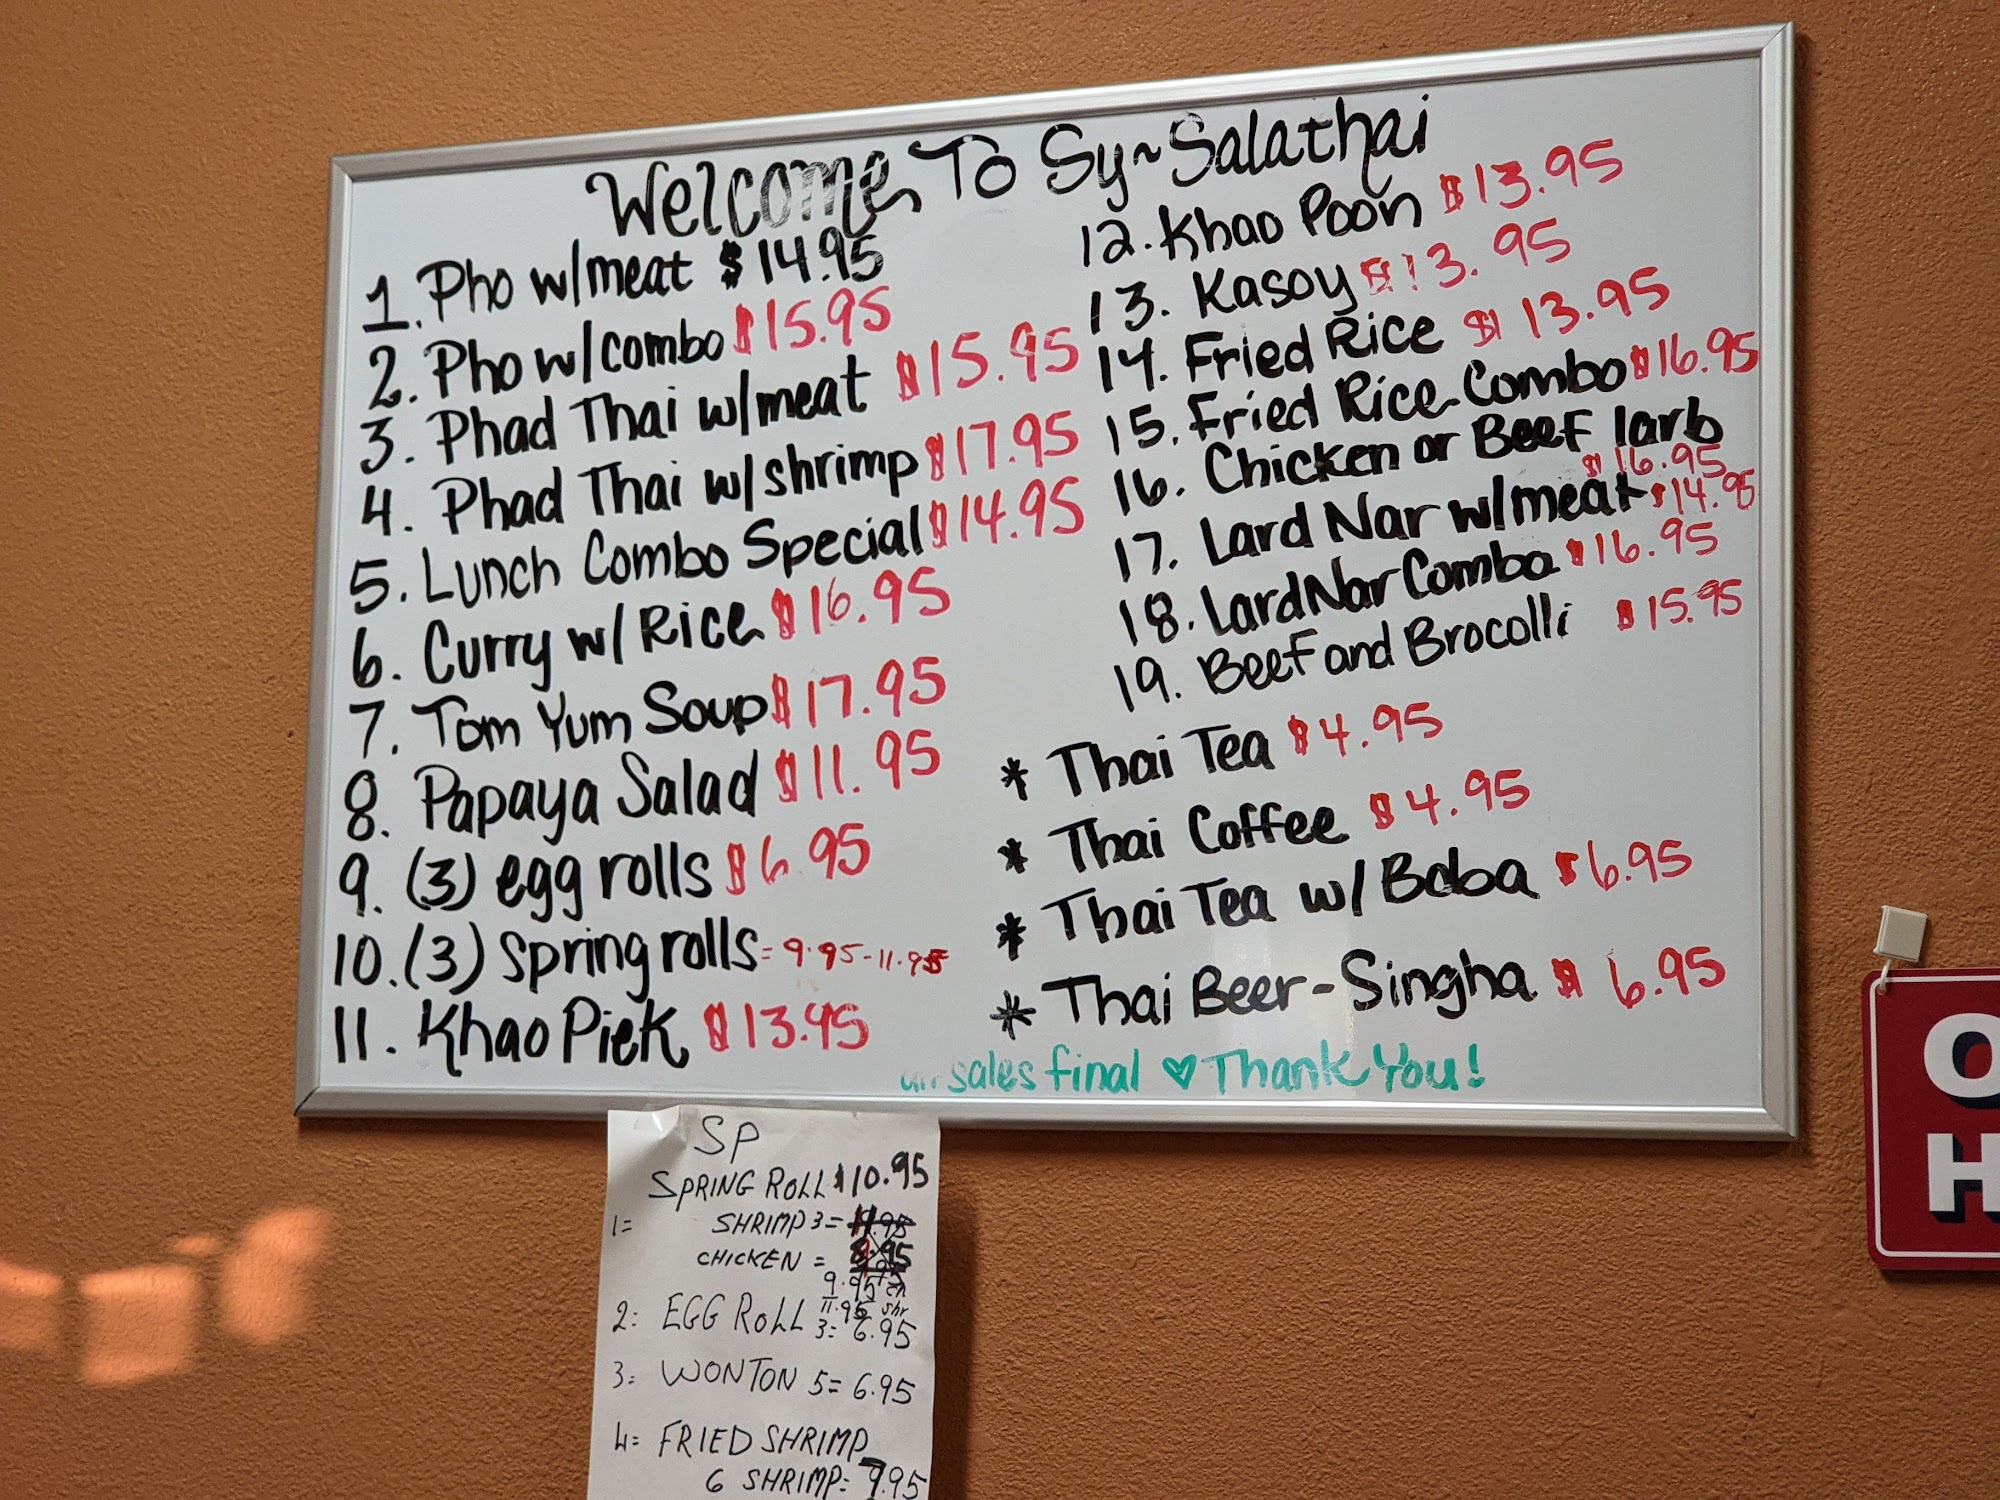 Welcome To Sy~Salathai
1. Pho w/meat $14.95
2. Pho w/combo $15.95
3. Phad Thai w/meat $15.95
4. Phad Thai w/shrimp $17.95
5. Lunch Combo Special $14.95
6. Curry w/ Rice $16.95
7. Tom Yum Soup $17.95
8. Papaya Salad $11.95
9. (3) egg rolls $6.95
10. (3) Spring rolls = 9.95-11.95
11. Khao Piek $13.95
12. Khao Poon $13.95
13. Kasoy $13.95
14. Fried Rice $13.95
15. Fried Rice Combo $16.95
16. Chicken or Beef larb
$16.95
17. Lard Nar w/meat $14.95
18. Lard Nar Combo $16.95
19. Beef and Brocolli $15.95
* Thai Tea $4.95
* Thai Coffee $4.95
* Thai Tea w/ Boba $6.95
* Thai Beer-Singha $6.95
all sales final ♥ Thank You!
SP
SPRING ROLL $10.95
1= SHRIMP 3=
CHICKEN =
9.95 ch
11.95 shr
2= EGG ROLL 3= 6.95
3= WONTON 5= 6.95
4= FRIED SHRIMP
6 SHRIMP= 9.95
O
H